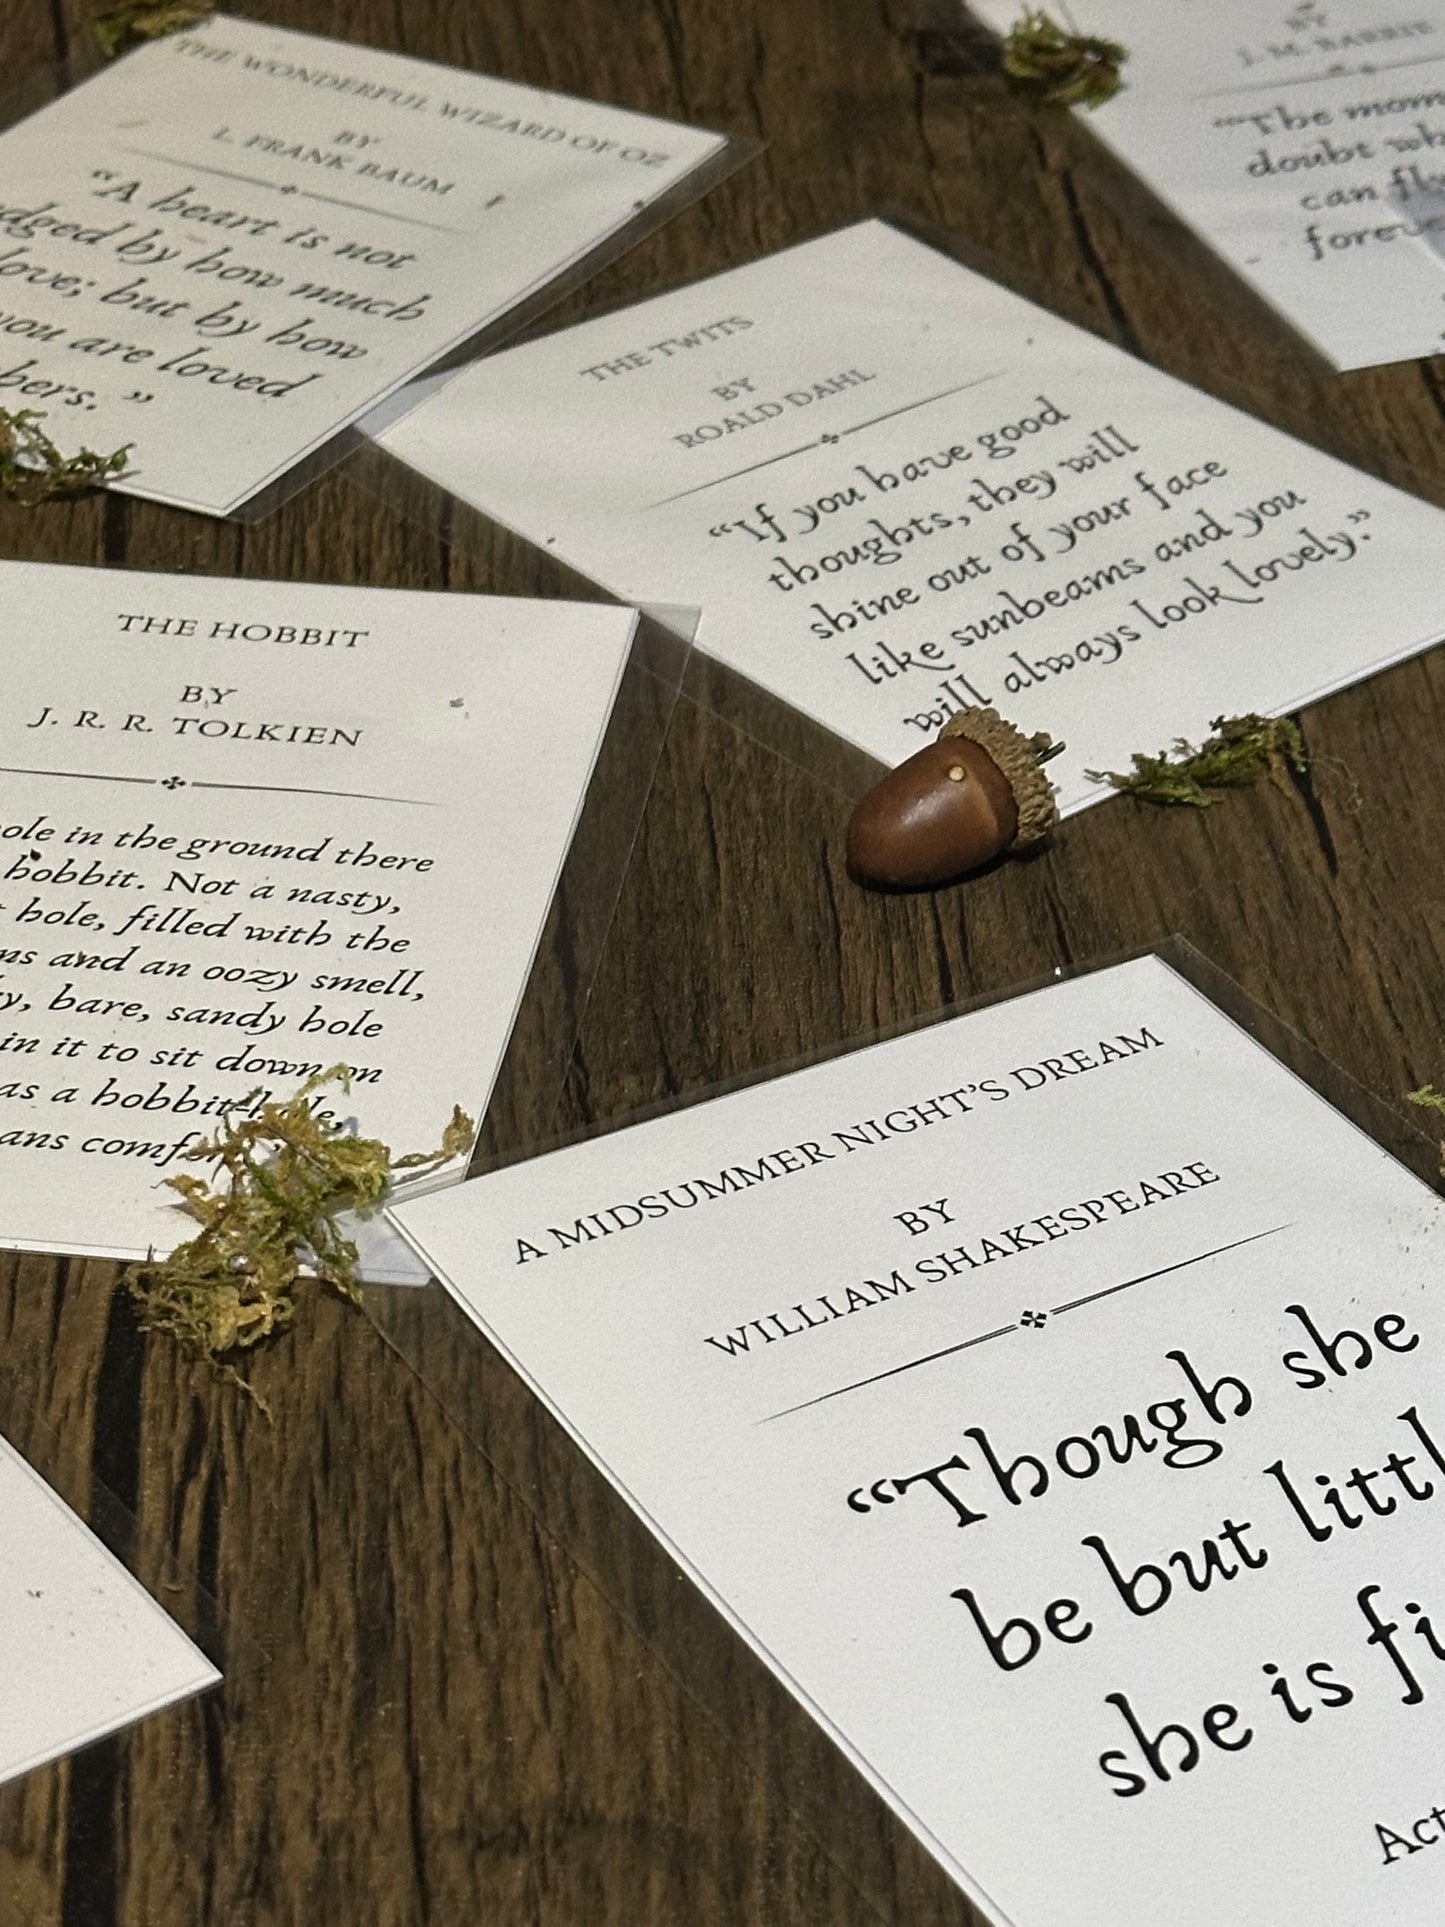 THE WONDERFUL WIZARD OF OZ
BY
L. FRANK BAUM
"A heart is not
dged by how much
love; but by how
you are loved
bers."
BY
J. M. BARRIE
"The mom
doubt wh
can fly
foreve
THE TWITS
BY
ROALD DAHL
"If you have good
thoughts, they will
shine out of your face
like sunbeams and you
will always look lovely."
THE HOBBIT
BY
J. R. R. TOLKIEN
ole in the ground there
hobbit. Not a nasty,
t hole, filled with the
ms and an oozy smell,
y, bare, sandy hole
in it to sit down on
as a hobbit-hole,
ans comfor
A MIDSUMMER NIGHT'S DREAM
BY
WILLIAM SHAKESPEARE
"Though she
be but littl
she is fi
Act